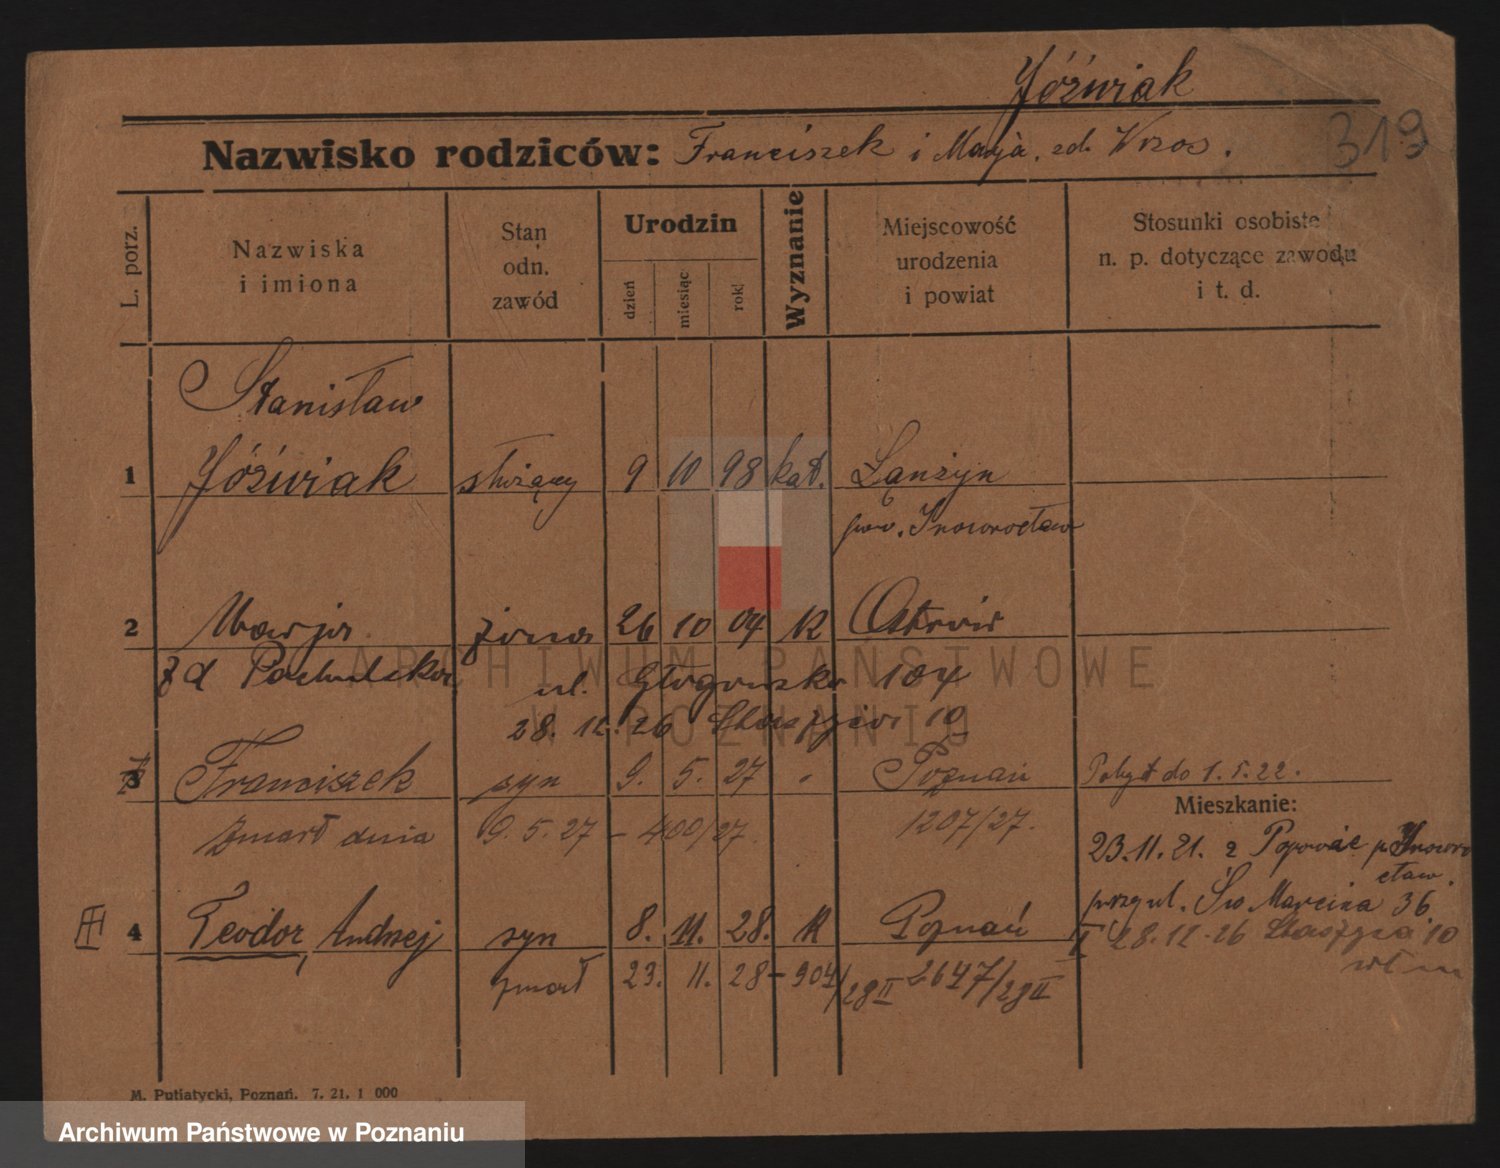 Jóźwiak
319
Nazwisko rodziców: Franciszek i Marja, zd. Wrzos.
L. porz.
Nazwiska i imiona
Stan odn. zawód
Urodzin
dzień
miesiąc
rok
Wyznanie
Miejscowość urodzenia i powiat
Stosunki osobiste n. p. dotyczące zawodu i t. d.
Stanisław
1 Jóźwiak służący 9 10 98 kat. Łążyn
pow. Inowrocław
2 Marja żona 26 10 04 k Ostrów
zd ul. Głogowska 104
28. 12. 26 Staszyca 10
3 Franciszek syn 9. 5. 27 Poznań Pobyt do 1.5.22.
Mieszkanie:
Zmarł dnia 9. 5. 27 - 400/27. 1207/27.
23.11.21. z p. Inowrocław.
przy ul. Św Marcina 36
4 Teodor, Andrzej syn 8. 11. 28. k Poznań
28.12.26 Staszyca 10
zmarł 23. 11. 28 - 904/28 II 2647/28 II
M. Putiatycki, Poznań. 7. 21. 1 000
ARCHIWUM PAŃSTWOWE
W POZNANIU
Archiwum Państwowe w Poznaniu